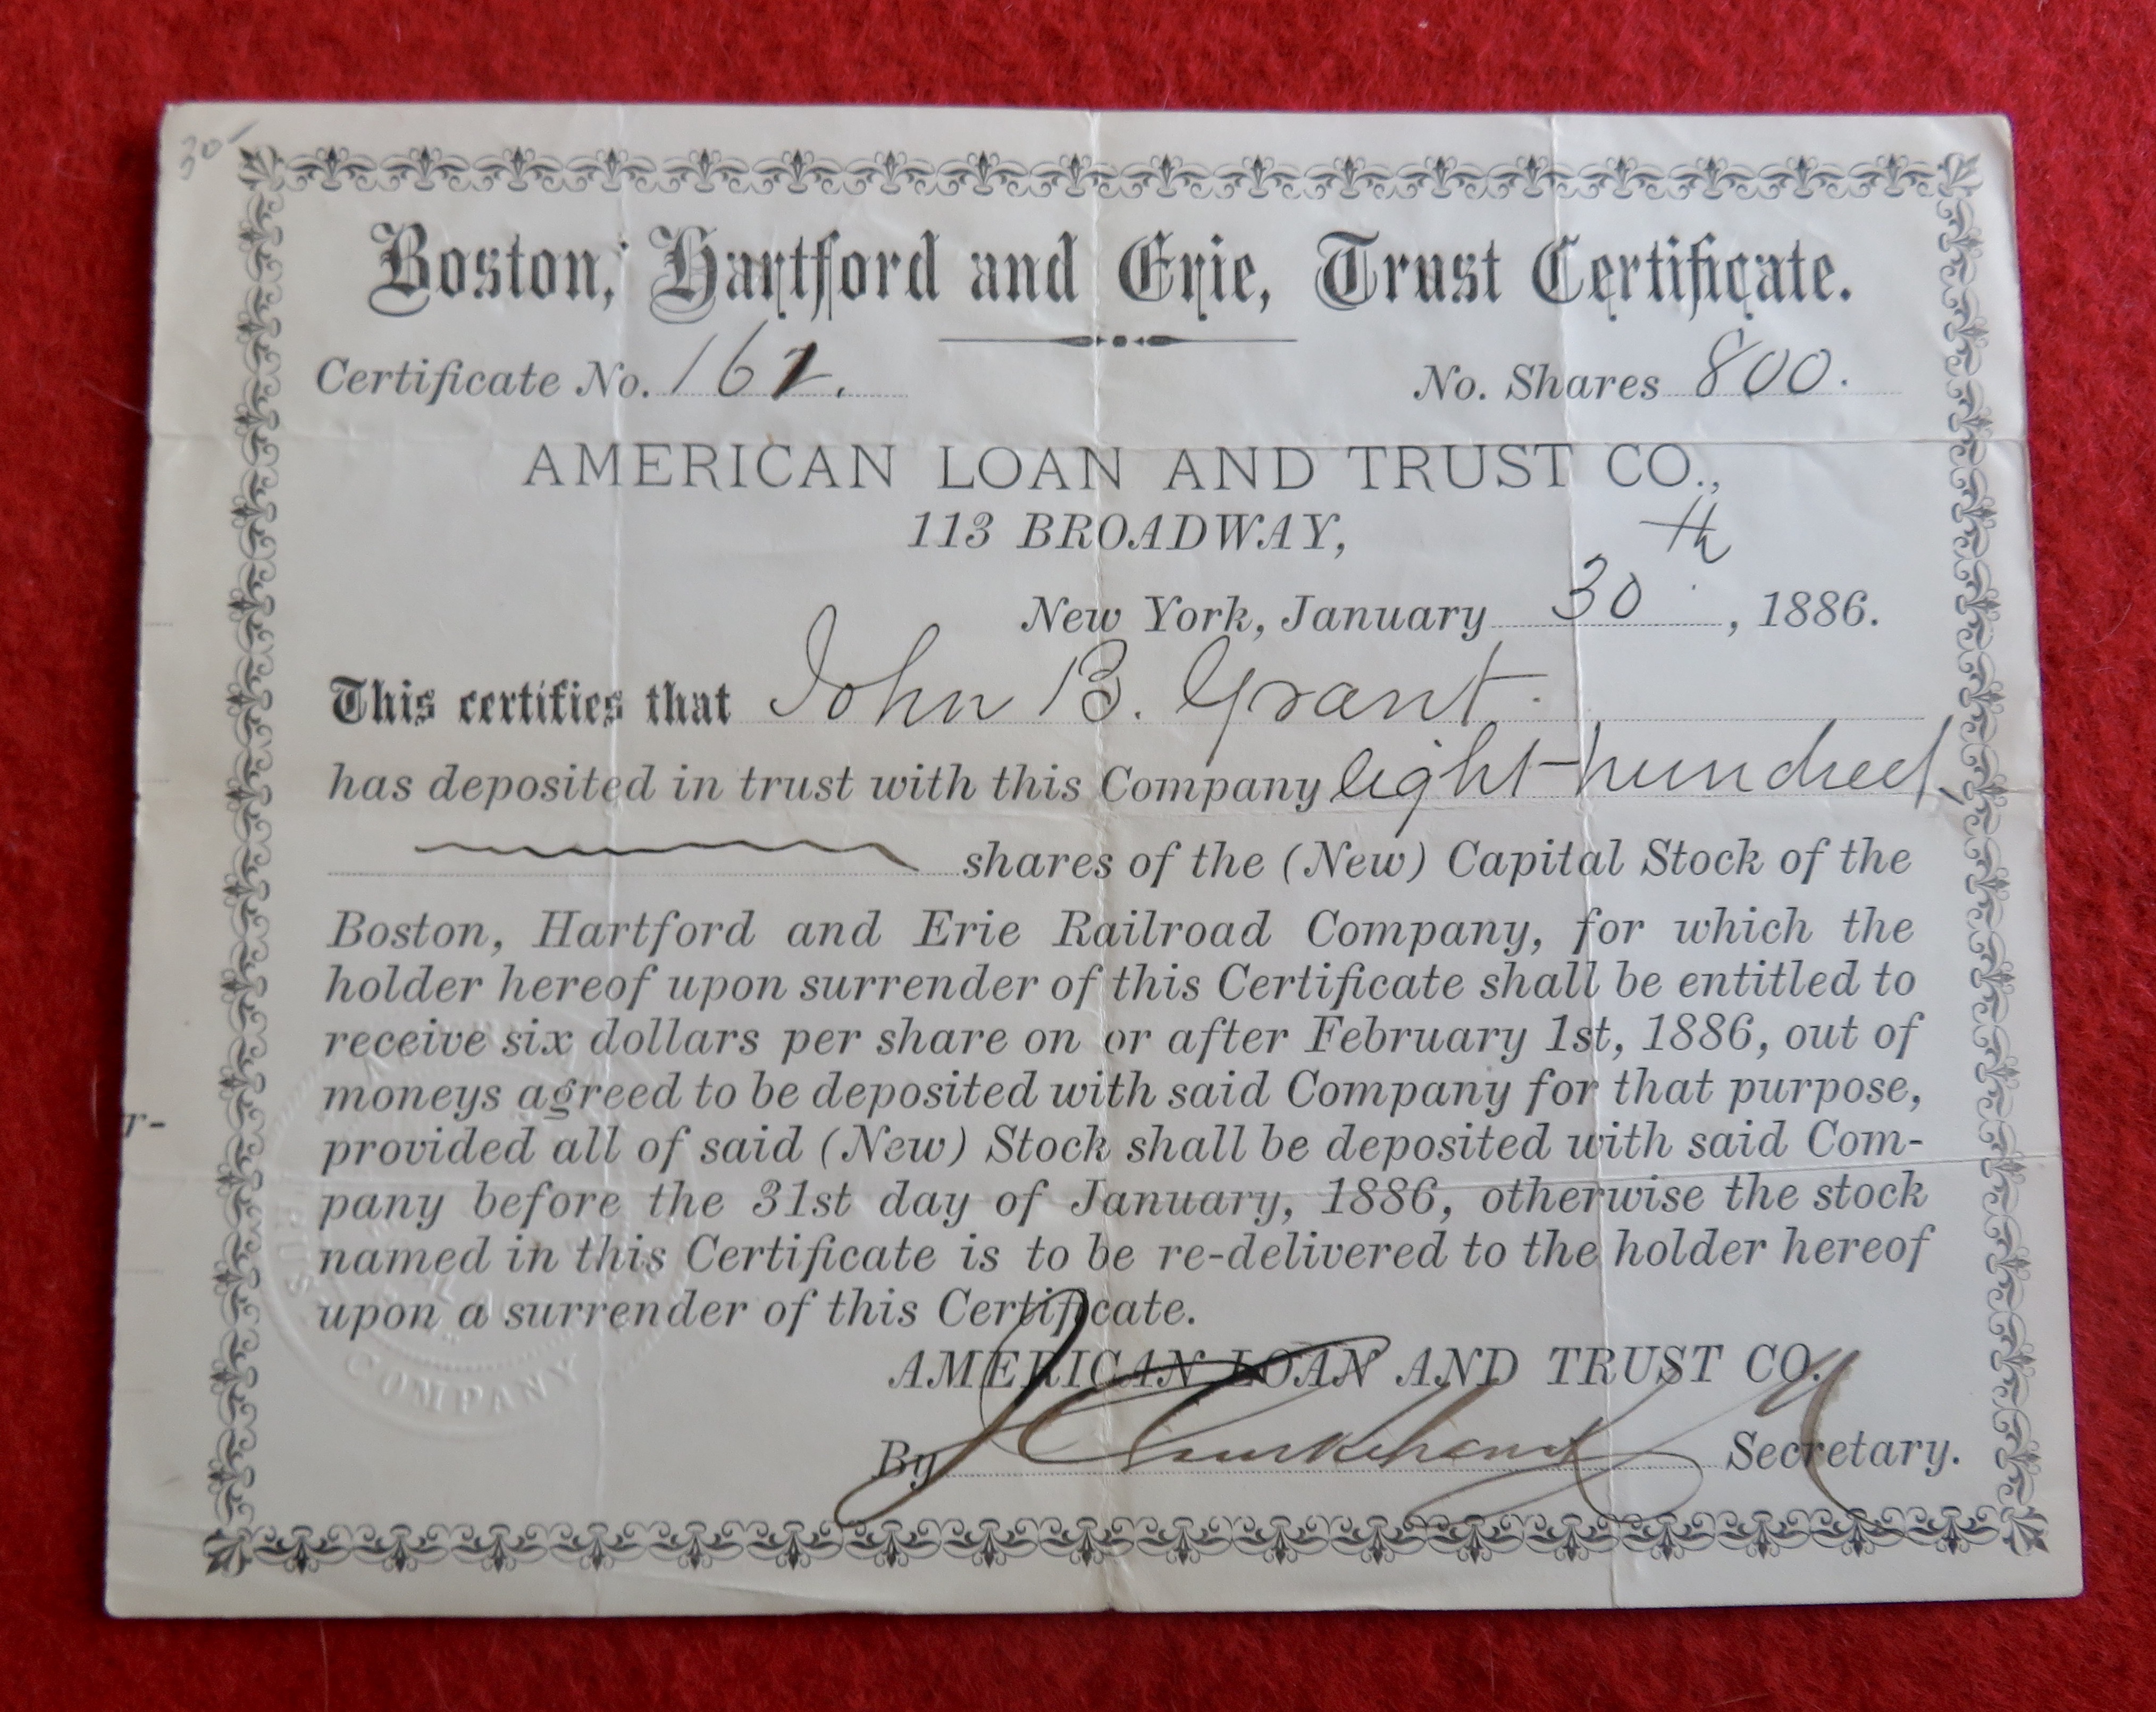 30-
Boston, Hartford and Erie, Trust Certificate.
Certificate No. 162. No. Shares 800.
AMERICAN LOAN AND TRUST CO.,
113 BROADWAY,
New York, January 30th, 1886.
This certifies that John B. Grant.
has deposited in trust with this Company eight hundred,
shares of the (New) Capital Stock of the
Boston, Hartford and Erie Railroad Company, for which the
holder hereof upon surrender of this Certificate shall be entitled to
receive six dollars per share on or after February 1st, 1886, out of
moneys agreed to be deposited with said Company for that purpose,
r-
provided all of said (New) Stock shall be deposited with said Com-
pany before the 31st day of January, 1886, otherwise the stock
named in this Certificate is to be re-delivered to the holder hereof
upon a surrender of this Certificate.
COMPANY
AMERICAN LOAN AND TRUST CO.
By Secretary.